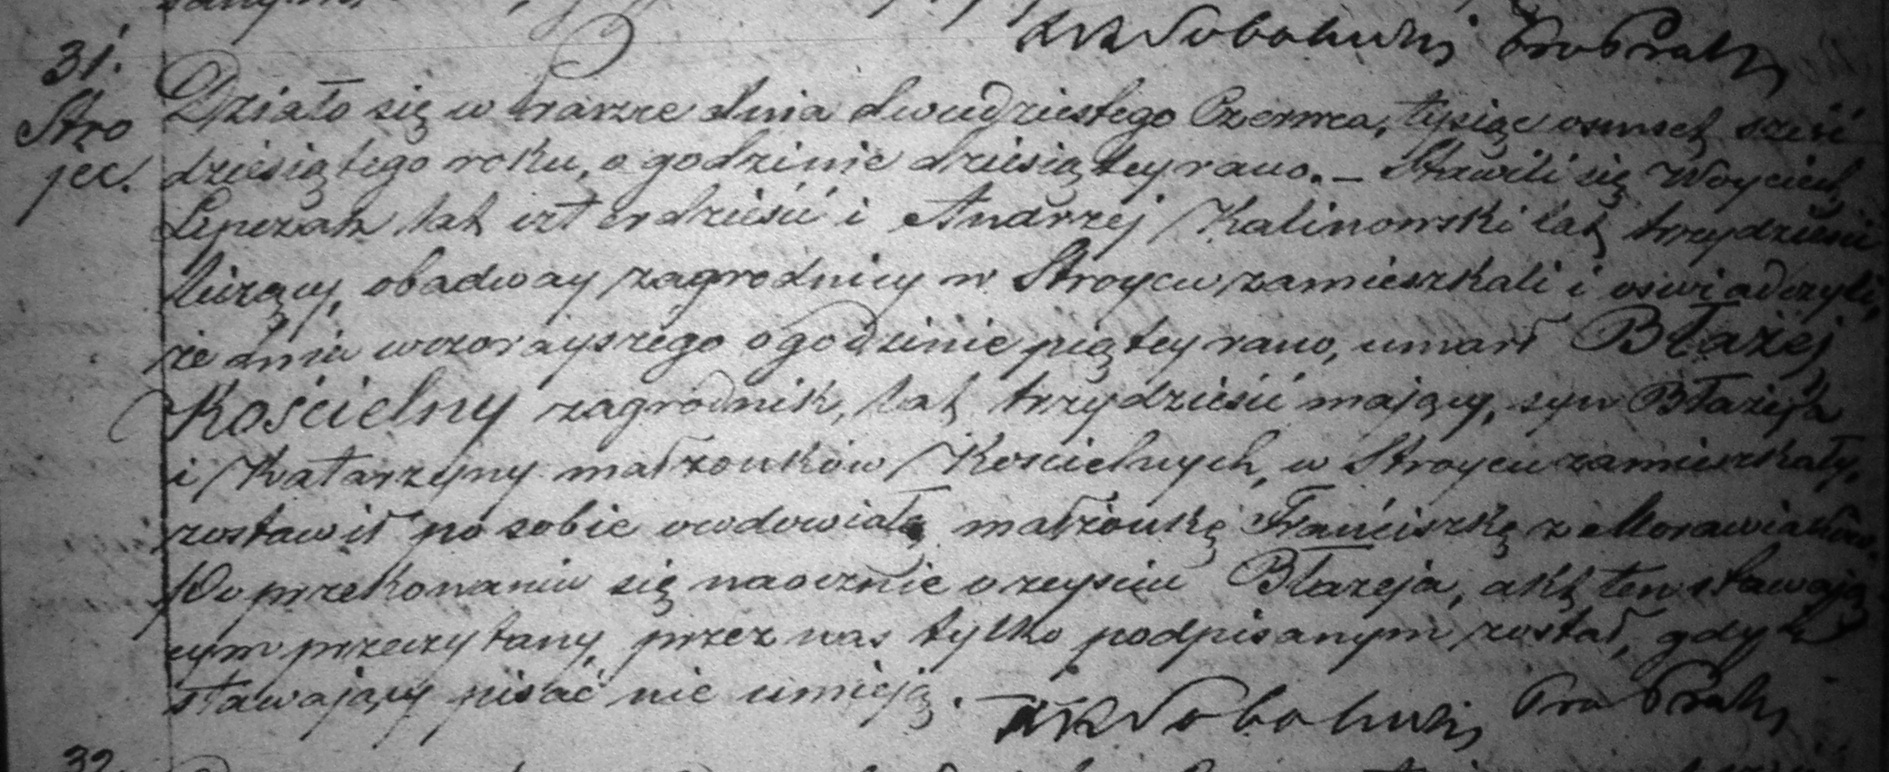 31.
Stro
jec.
Działo się w Praszce dnia dwudziestego Czerwca, tysiąc osmset sześć
dziesiątego roku, o godzinie dziesiątey rano. – Stawili się Woyciech
Lepczak lat czterdzieści i Andrzej Kalinowski lat trzydzieści
liczący, obadway zagrodnicy w Stroycu zamieszkali i oswiadczyli,
że dnia wczorayszego o godzinie piątey rano, umarł Błażej
Kościelny zagrodnik, lat trzydzieści mający, syn Błażeja
i Katarzyny małżonków Kościelnych, w Stroycu zamieszkały,
zostawił po sobie owdowiałą małżonkę Franciszkę z Morawiaków.
Po przekonaniu się naocznie o zeysciu Błażeja, akt ten stawają
cym przeczytany przez nas tylko podpisanym został, gdyż
stawający pisać nie umieją.
32.